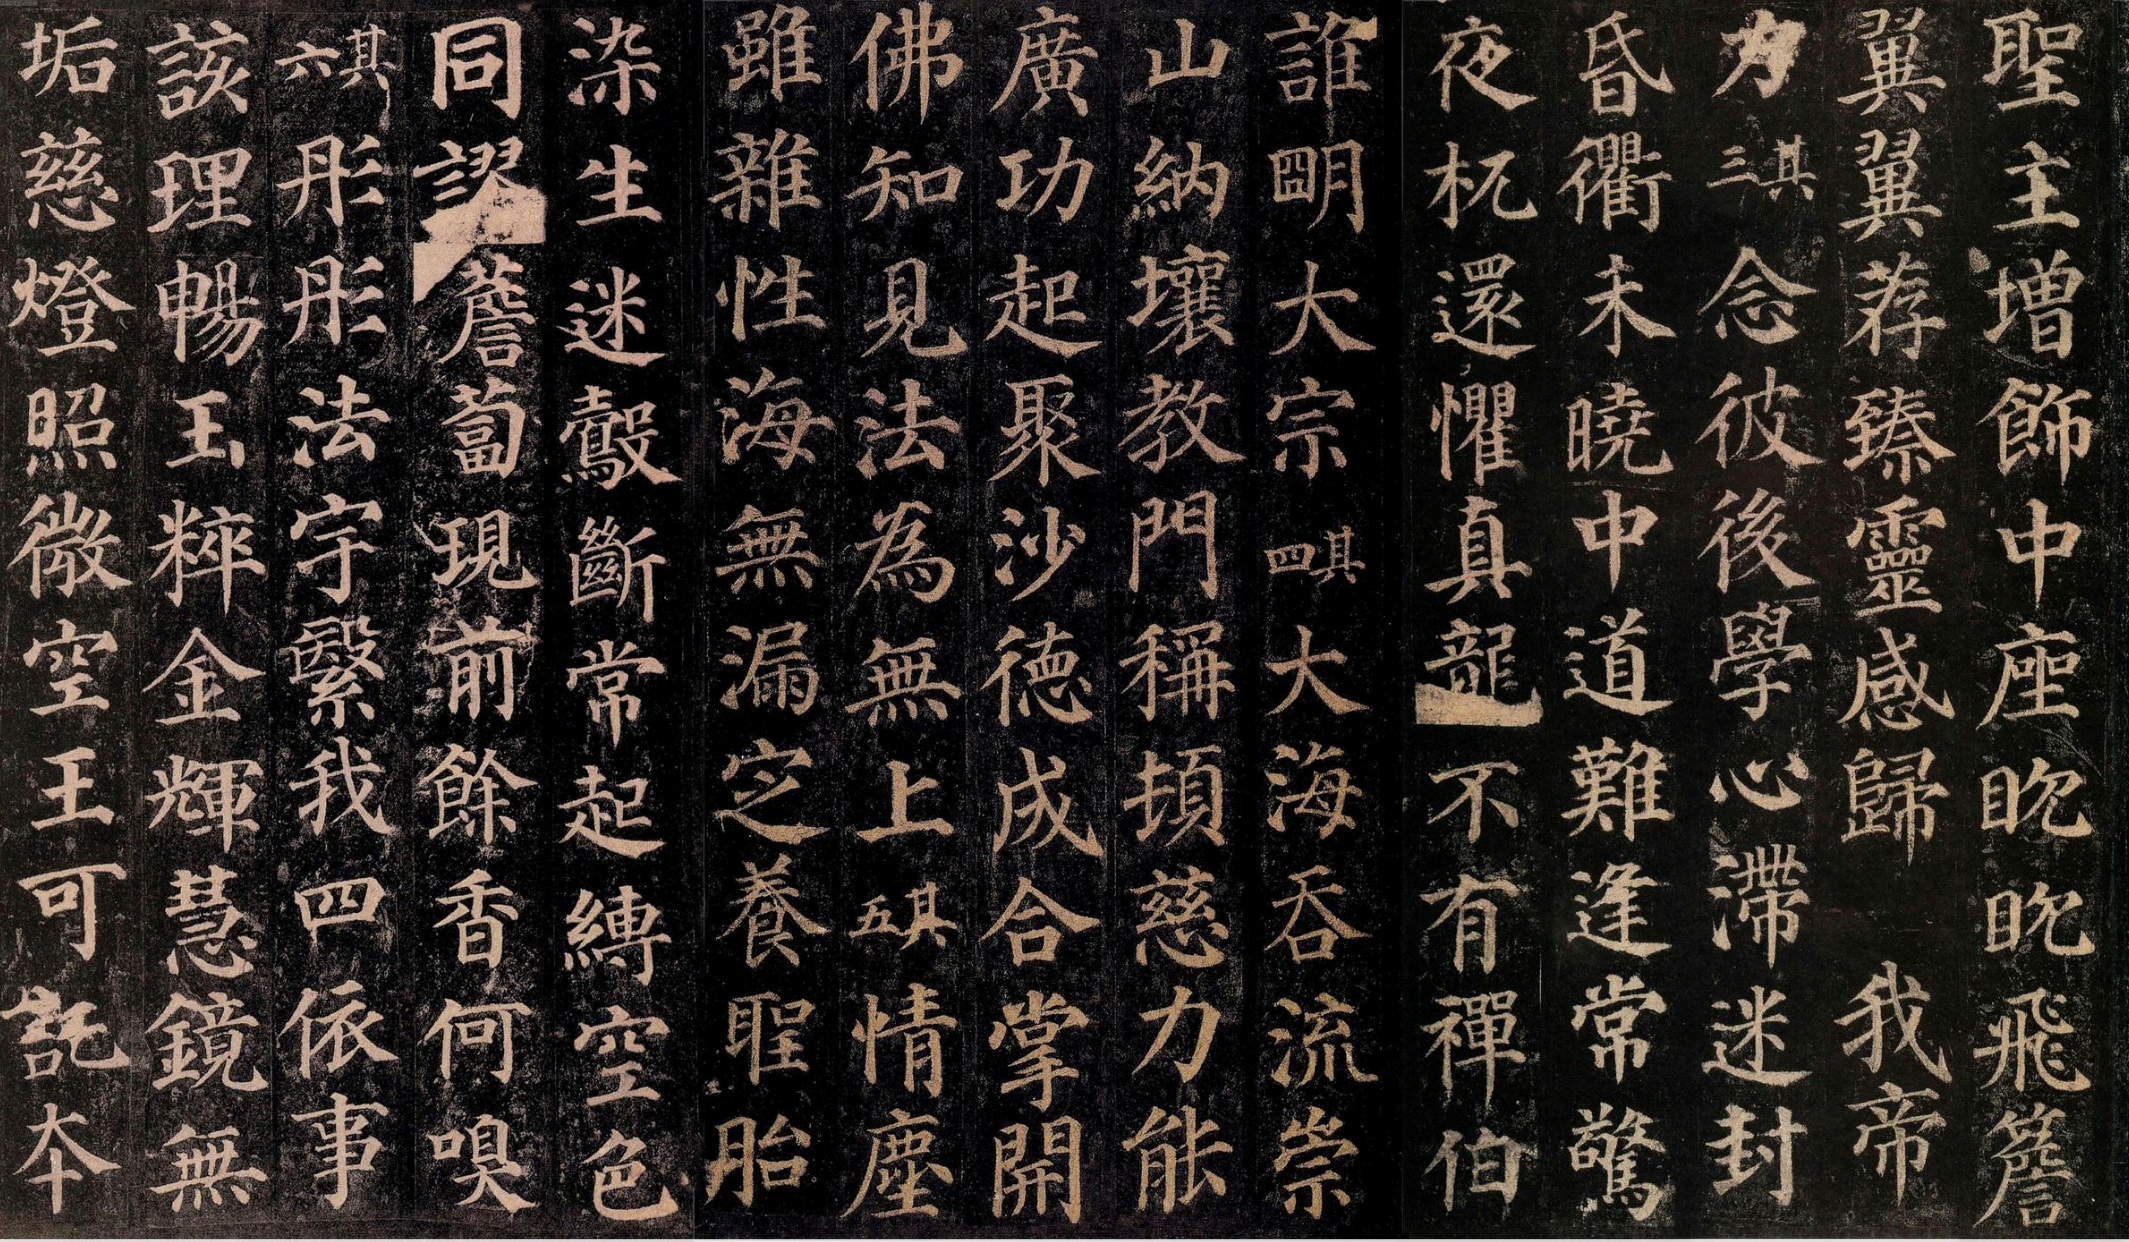 聖主增飾中座眈眈飛簷
翼翼荐臻靈感歸 我帝
力其三念彼後學心滯迷封
昏衢未曉中道難逢常驚
夜杌還懼真龍不有禪伯
誰明大宗其四大海吞流崇
山納壤教門稱頓慈力能
廣功起聚沙德成合掌開
佛知見法為無上其五情塵
雖雜性海無漏定養聖胎
染生迷鷇斷常起縛空色
同謬薝蔔現前餘香何嗅
其六彤彤法宇繄我四依事
該理暢玉粹金輝慧鏡無
垢慈燈照微空王可託本